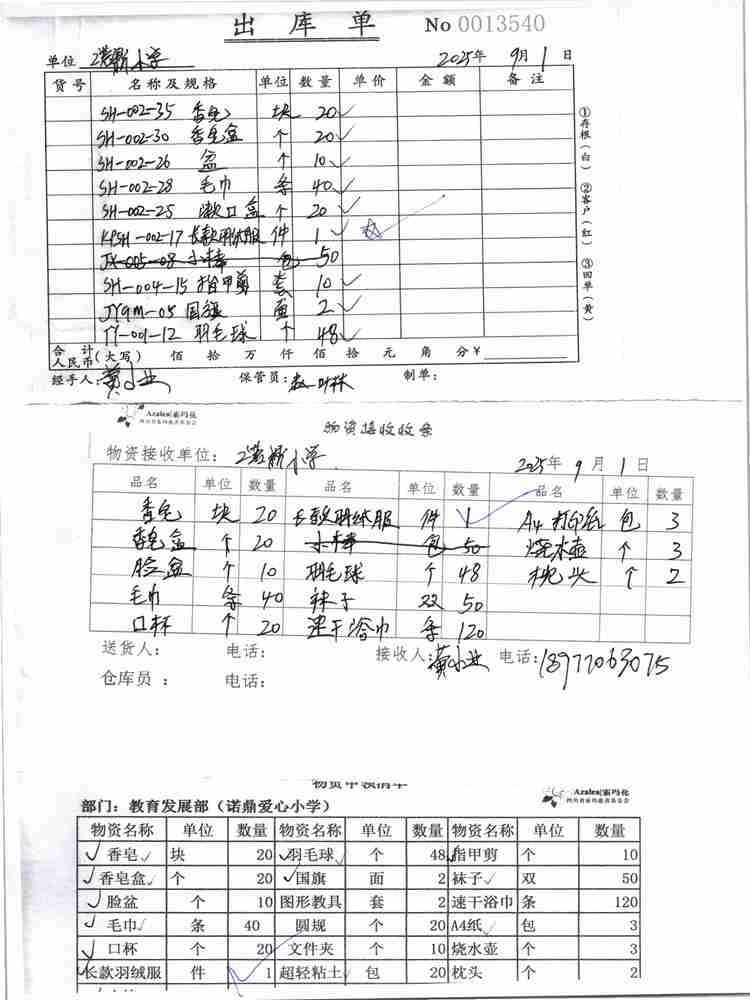 出 库 单 No 0013540
单位 诺鼎小学 2025年 9月 1 日
货号 名称及规格 单位 数量 单价 金额 备注
SH-002-35 香皂 块 20
SH-002-30 香皂盒 个 20
SH-002-26 盆 个 10
SH-002-28 毛巾 条 40
SH-002-25 漱口盒 个 20
KPSH-002-17 长款羽绒服 件 1
JX-005-08 小棒 包 50
SH-004-15 指甲剪 套 10
JYQM-05 国旗 面 2
TY-001-12 羽毛球 个 48
合计
人民币(大写) 佰 拾 万 仟 佰 拾 元 角 分 ¥
经手人:黄小业 保管员: 制单:
①存根(白) ②客户(红) ③回单(黄)
Azalea|索玛花
物资接收收条
物资接收单位: 诺鼎小学 2025年 9月 1日
品名 单位 数量 品名 单位 数量 品名 单位 数量
香皂 块 20 长款羽绒服 件 1 A4打印纸 包 3
香皂盒 个 20 小棒 包 50 烧水壶 个 3
脸盆 个 10 羽毛球 个 48 枕头 个 2
毛巾 条 40 袜子 双 50
口杯 个 20 速干浴巾 条 120
送货人: 电话: 接收人:黄小业 电话:18977063075
仓库员: 电话:
物资申领清单
Azalea|索玛花
部门:教育发展部(诺鼎爱心小学)
物资名称 单位 数量 物资名称 单位 数量 物资名称 单位 数量
香皂 块 20 羽毛球 个 48 指甲剪 个 10
香皂盒 个 20 国旗 面 2 袜子 双 50
脸盆 个 10 图形教具 套 2 速干浴巾 条 120
毛巾 条 40 圆规 个 20 A4纸 包 3
口杯 个 20 文件夹 个 10 烧水壶 个 3
长款羽绒服 件 1 超轻粘土 包 20 枕头 个 2